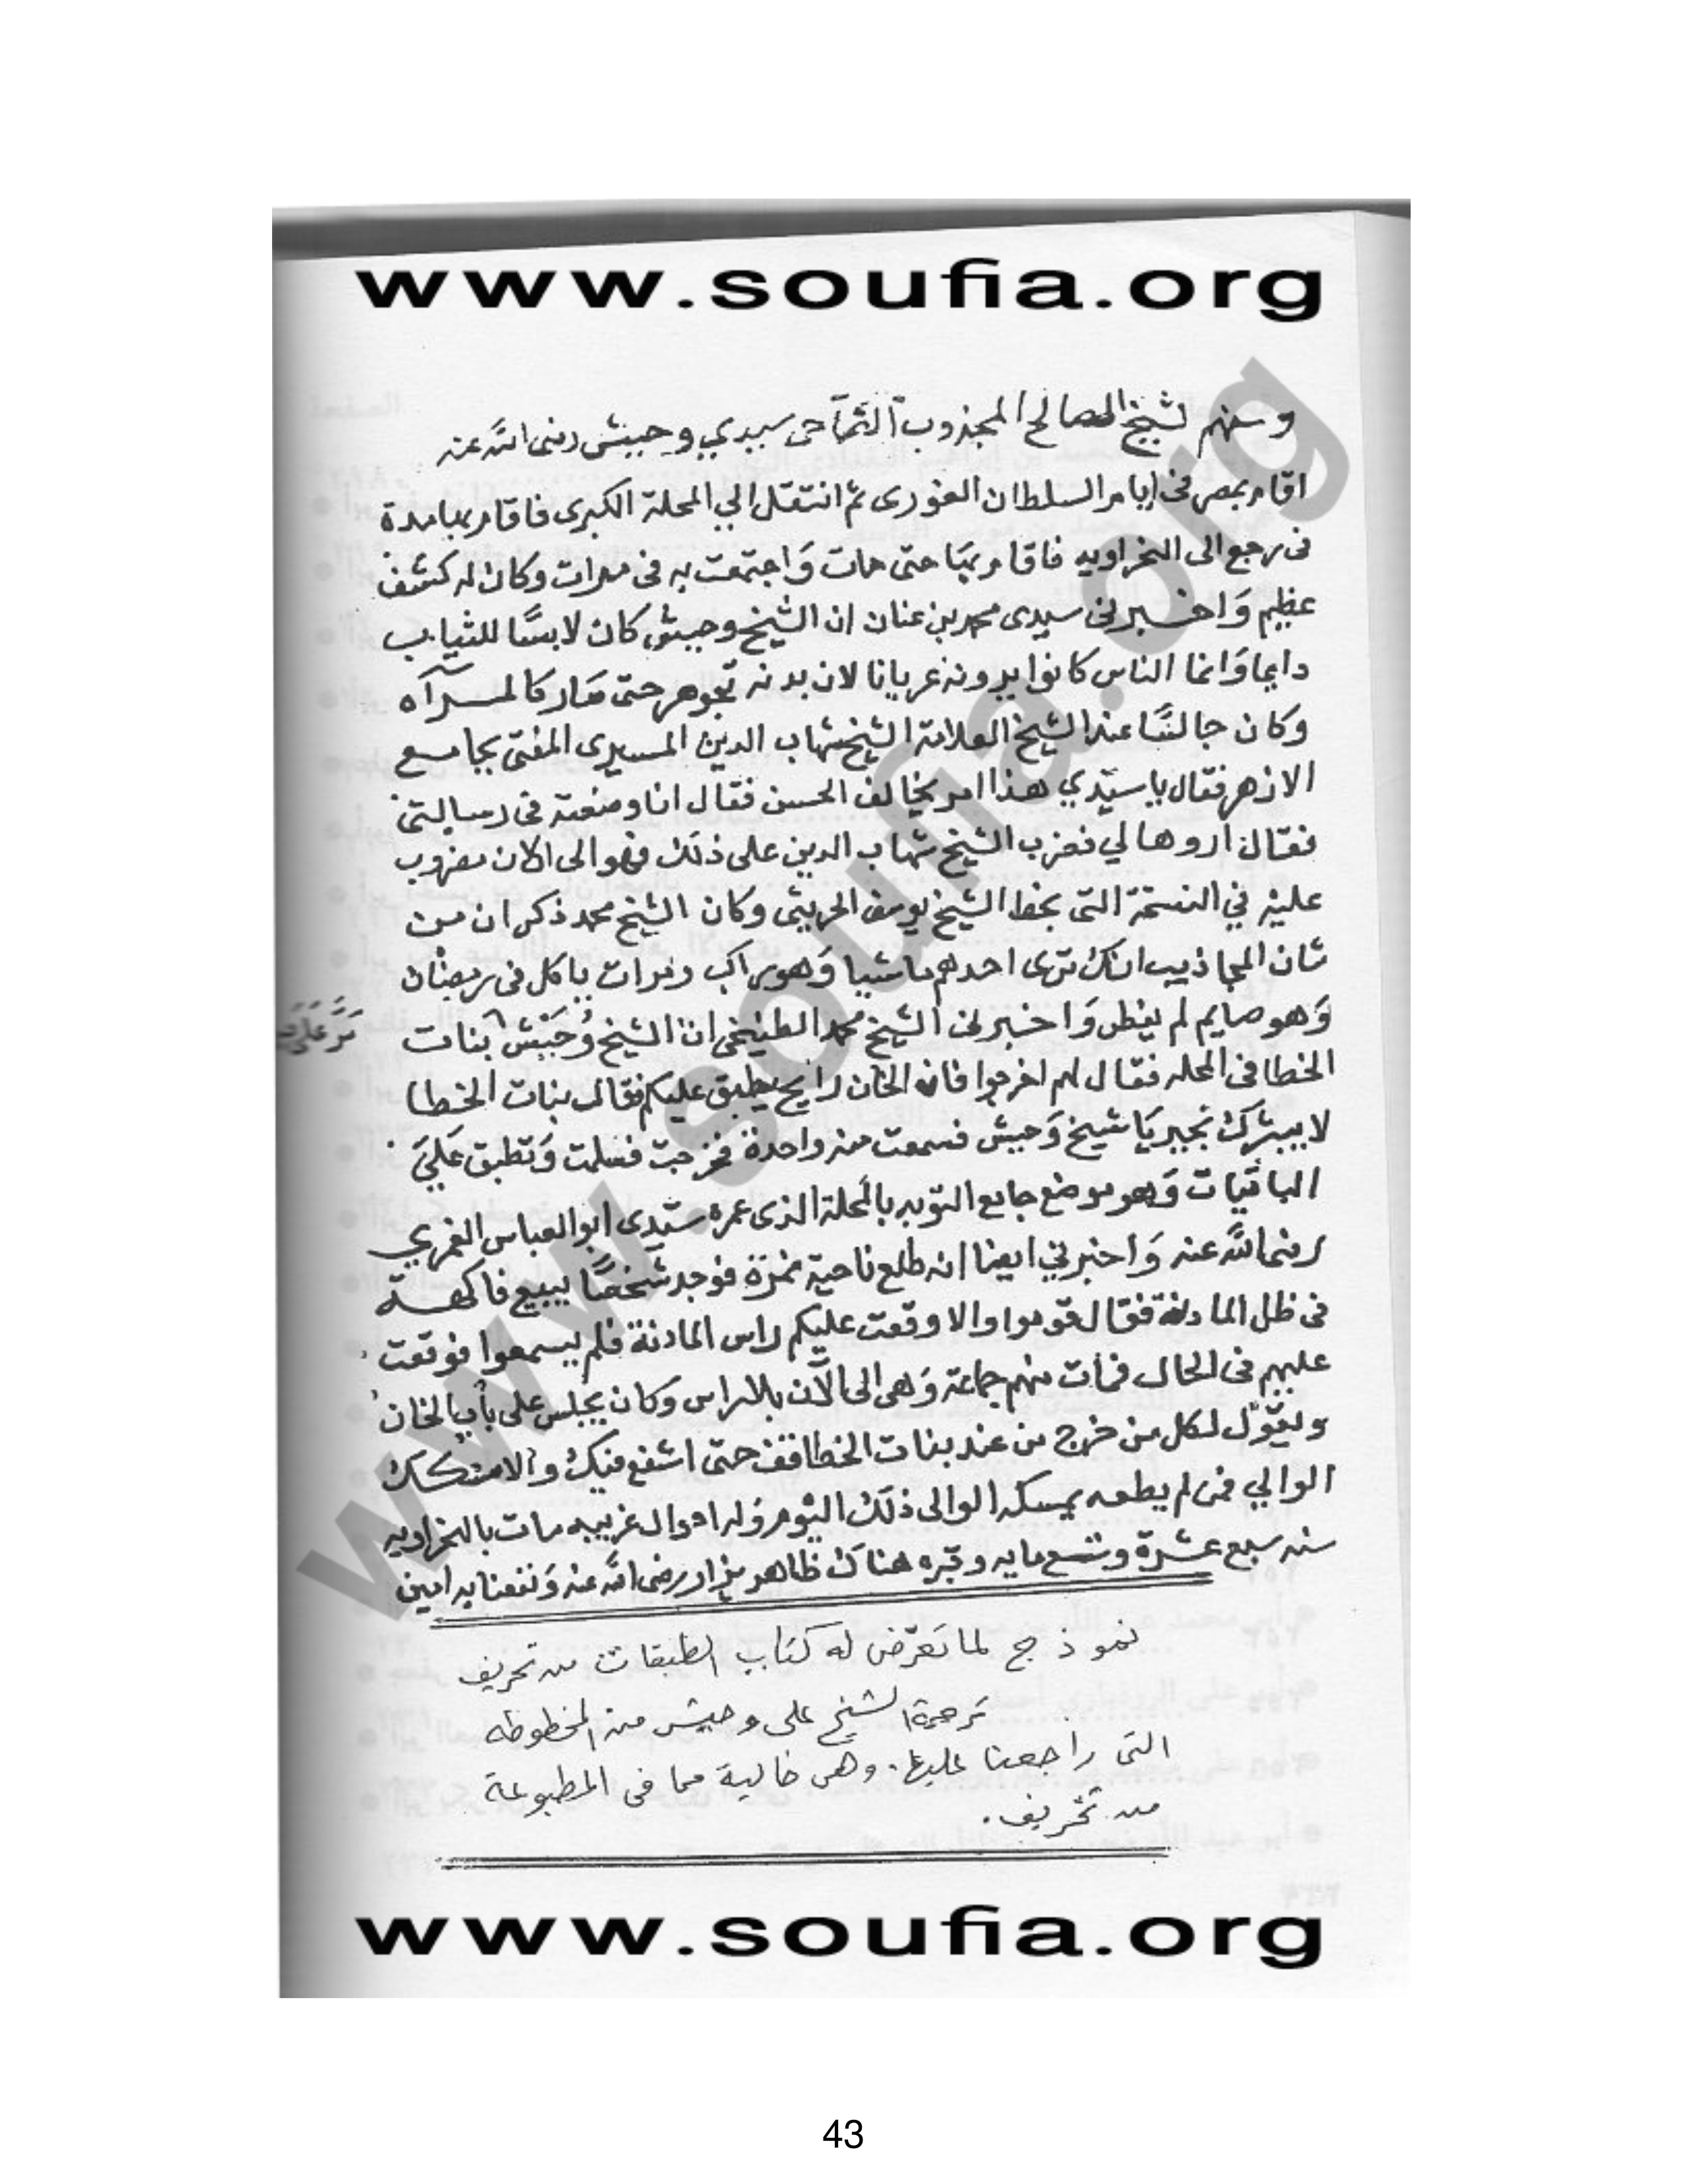 www.soufia.org
ومنهم الشيخ الصالح المجذوب الثمآحى سيدي وحيش رضى الله عنه
اقام بمصر فى ايام السلطان الغورى ثم انتقل الي المحلة الكبرى فاقام بها مدة
ثم رجع الى النحراريه فاقام بها حتى مات وَاجتمعت به فى مرات وكان له كشف
عظيم وَاخبرنى سيدى محمد بن عنان ان الشيخ وحيش كان لابسًا للثياب
دايما وَانما الناس كانوا يرونه عريانا لان بدنه تجوهر حتى صَار كالمرآه
وكان جالسًا عند الشيخ العلامة الشيخ شهاب الدين المسيرى المفتى بجامع
الازهر فقال يا سيّدي هذا امر يخالف الحس فقال انا وضعته فى رسالتى
فقال اروها لي فضرب الشيخ شهاب الدين على ذلك فهو الى الان مضروب
عليه في النسخة التى بخط الشيخ يوسف الحريثى وكان الشيخ محمد ذكر ان من
شان المجاذيب انك ترى احدهم ماشيا وَهو راكب ومرات ياكل فى رمضان
وَهو صايم لم يفطر وَاخبرنى الشيخ محمد الطنيخى ان الشيخ وُحَيْش بنات
مَرَّ عَلَى
الخطا فى المحله فقال لهم اخرجوا فان الخان رايح يطبق عليكم فقال بنات الخطا
لا يبشرك بخير يَا شيخ وَحيش فسمعت منه واحدة فخرجت فسلمت وَتطبق عَلىَ
الباقيات وَهو موضع جامع التوبه بالمحلة الذى عمره سيّدى ابو العباس الغمري
رضى الله عنه وَاخبرني ايضا انه طلع ناحية نمرة فوجد شخصًا يبيع فاكهة
فى ظل المادنة فقال قوموا والا وقعت عليكم راس المادنة فلم يسمعوا فوقعت
عليهم فى الحال فمات منهم جماعة وَهى الى الآن بلا راس وَكان يجلس على باب الخان
ويقوّل لكل من خرج من عند بنات الخطا قف حتى اشفع فيك والا مسكك
الوالي فمن لم يطعه يمسكه الوالى ذلك اليوم وَله احوال غريبه مات بالنحراريه
سنه سبع عشرة وتسعمايه وقبره هناك ظاهر يزار رضى الله عنه وَنفعنا به امين
نموذج لما تعرّض له كتاب الطبقات من تحريف
ترجمة الشيخ على وحيش من المخطوطه
التى راجعنا عليها. وهى خالية مما فى المطبوعة
من تخريف.
www.soufia.org
43